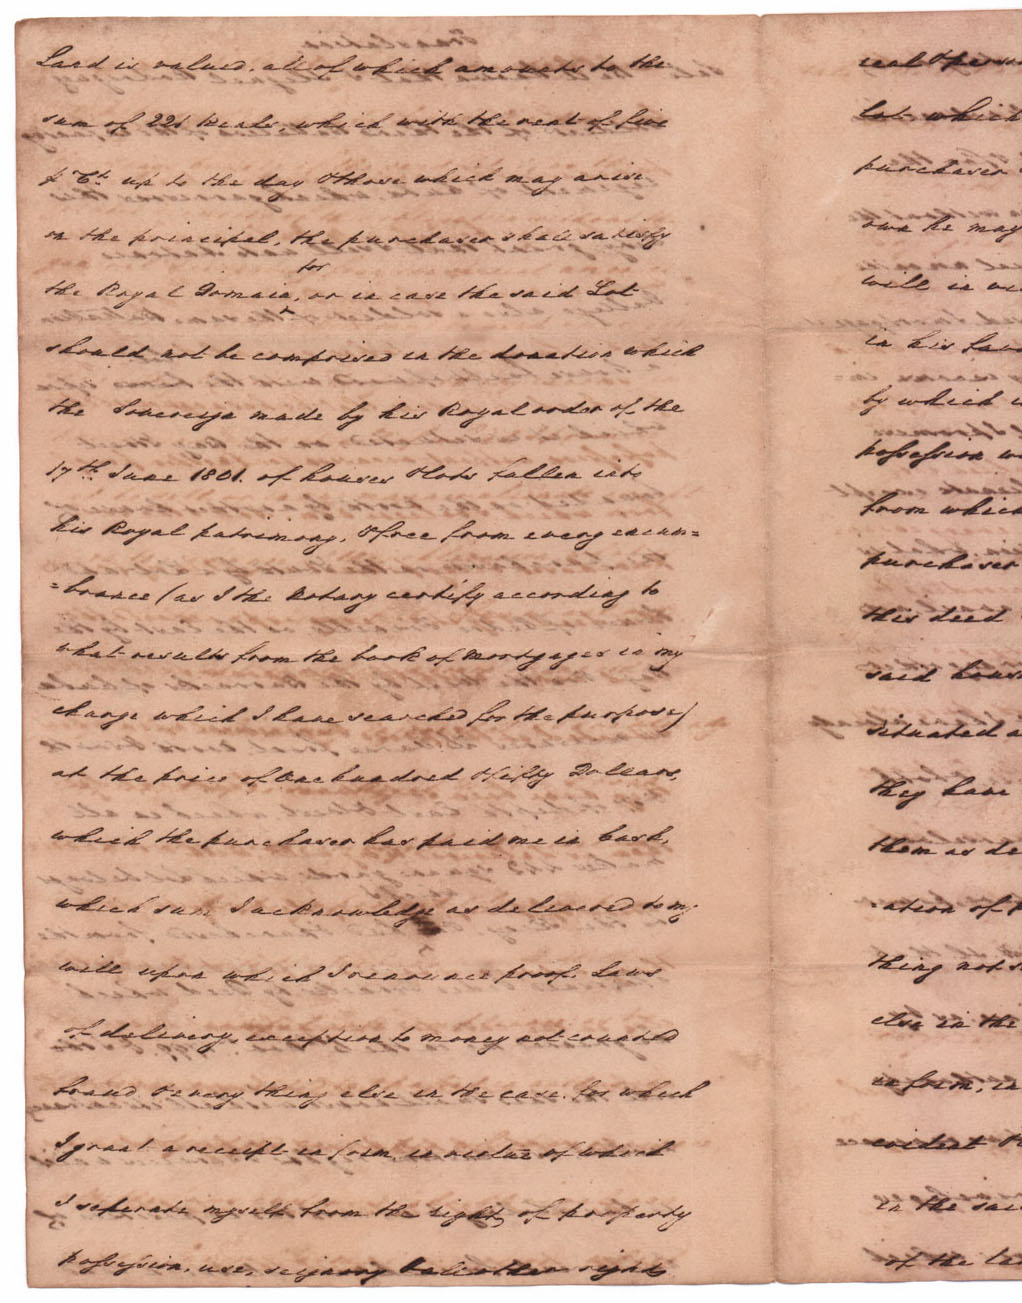 Land is valued, all of which amounts to the
sum of 221 Reals, which with the rent of five
p Ct. up to the day & those which may arise
on the principal, the purchaser shall satisfy
for
the Royal Domain, or in case the said Lot
should not be comprised in the donation which
the Sovereign made by his Royal order of the
17th June 1801. of houses & lots fallen into
his Royal patrimony, & free from every incum=
=brance (as I the Notary certify according to
what results from the book of mortgages in my
charge which I have searched for the purpose)
at the price of One hundred & fifty Dollars,
which the purchaser has paid me in Cash,
which sum I acknowledge as delivered to my
will upon which I renounce proof. Laws
of delivery, exception to money not counted
fraud & every thing else in the case. for which
I grant a receipt in form, in virtue of which
I seperate myself from the right of property
possession, use, seignory & all other rights
real & perso
lot which
purchaser
own he may
will in vi
in his fav
by which
possession w
from which
purchaser
this deed
said hous
situated a
they have
them as de
=ation of
thing not
else in the
in form, in
evident
in the sai
of the la